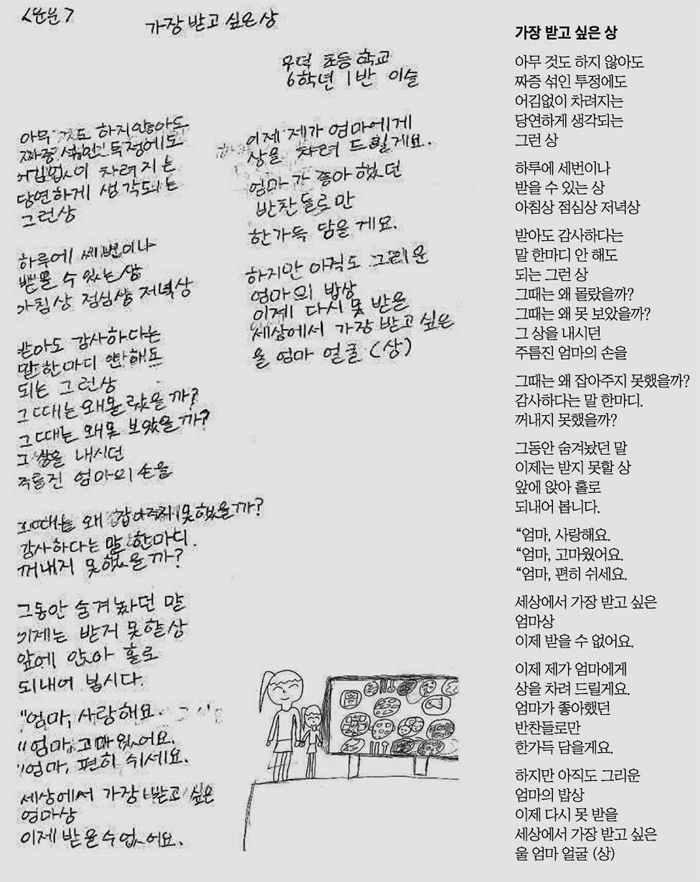 <산문>
가장 받고 싶은상
우덕 초등학교
6학년 1반 이슬
아무것도 하지않아도
짜증섞인 투정에도
어김없이 차려지는
당연하게 생각되는
그런상
하루에 세번이나
받을 수 있는상
아침상 점심상 저녁상
받아도 감사하다는
말한마디 안해도
되는 그런상
그때는 왜몰랐을까?
그때는 왜못 보았을까?
그 상을 내시던
주름진 엄마의 손을
그때는 왜 잡아주지 못했을까?
감사하다는 말 한마디.
꺼내지 못했을까?
그동안 숨겨놨던 말
이제는 받지 못할상
앞에 앉아 홀로
되내어 봅시다.
"엄마, 사랑해요.
"엄마, 고마웠어요.
"엄마, 편히 쉬세요.
세상에서 가장 받고 싶은
엄마상
이제 받을수없어요.
이제 제가 엄마에게
상을 차려 드릴게요.
엄마가 좋아했던
반찬들로만
한가득 담을게요.
하지만 아직도 그리운
엄마의 밥상
이제 다시 못 받을
세상에서 가장 받고 싶은
울 엄마 얼굴 (상)
가장 받고 싶은 상
아무 것도 하지 않아도
짜증 섞인 투정에도
어김없이 차려지는
당연하게 생각되는
그런 상
하루에 세번이나
받을 수 있는 상
아침상 점심상 저녁상
받아도 감사하다는
말 한마디 안 해도
되는 그런 상
그때는 왜 몰랐을까?
그때는 왜 못 보았을까?
그 상을 내시던
주름진 엄마의 손을
그때는 왜 잡아주지 못했을까?
감사하다는 말 한마디.
꺼내지 못했을까?
그동안 숨겨놨던 말
이제는 받지 못할 상
앞에 앉아 홀로
되내어 봅니다.
“엄마, 사랑해요.
“엄마, 고마웠어요.
“엄마, 편히 쉬세요.
세상에서 가장 받고 싶은
엄마상
이제 받을 수 없어요.
이제 제가 엄마에게
상을 차려 드릴게요.
엄마가 좋아했던
반찬들로만
한가득 담을게요.
하지만 아직도 그리운
엄마의 밥상
이제 다시 못 받을
세상에서 가장 받고 싶은
울 엄마 얼굴 (상)